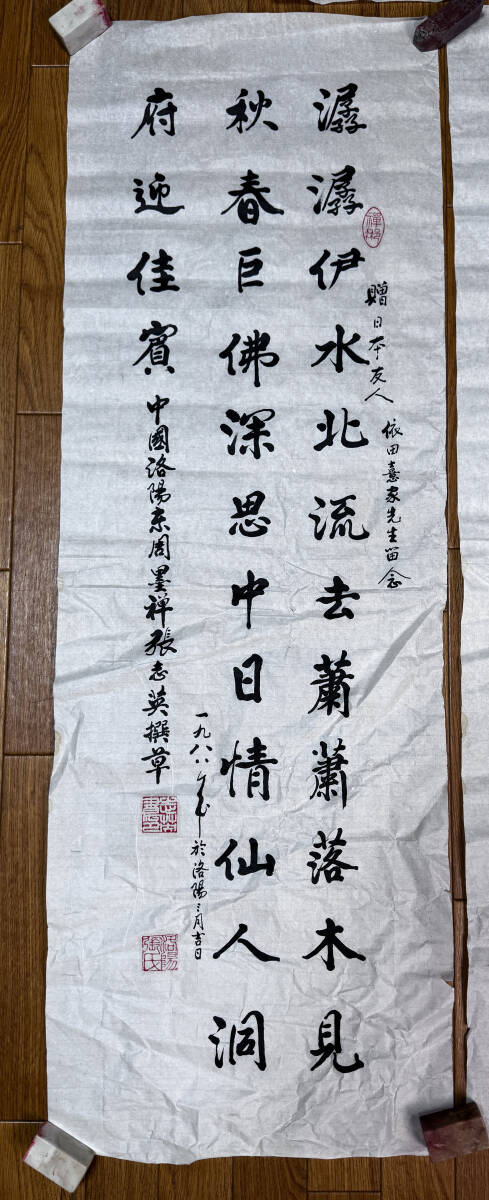 潺潺伊水北流去蕭蕭落木見
秋春巨佛深思中日情仙人洞
府迎佳賓
贈日本友人
依田憙家先生留念
中國洛陽東周墨禅張志英撰草
一九八八年於洛陽三月吉日
洛陽張氏